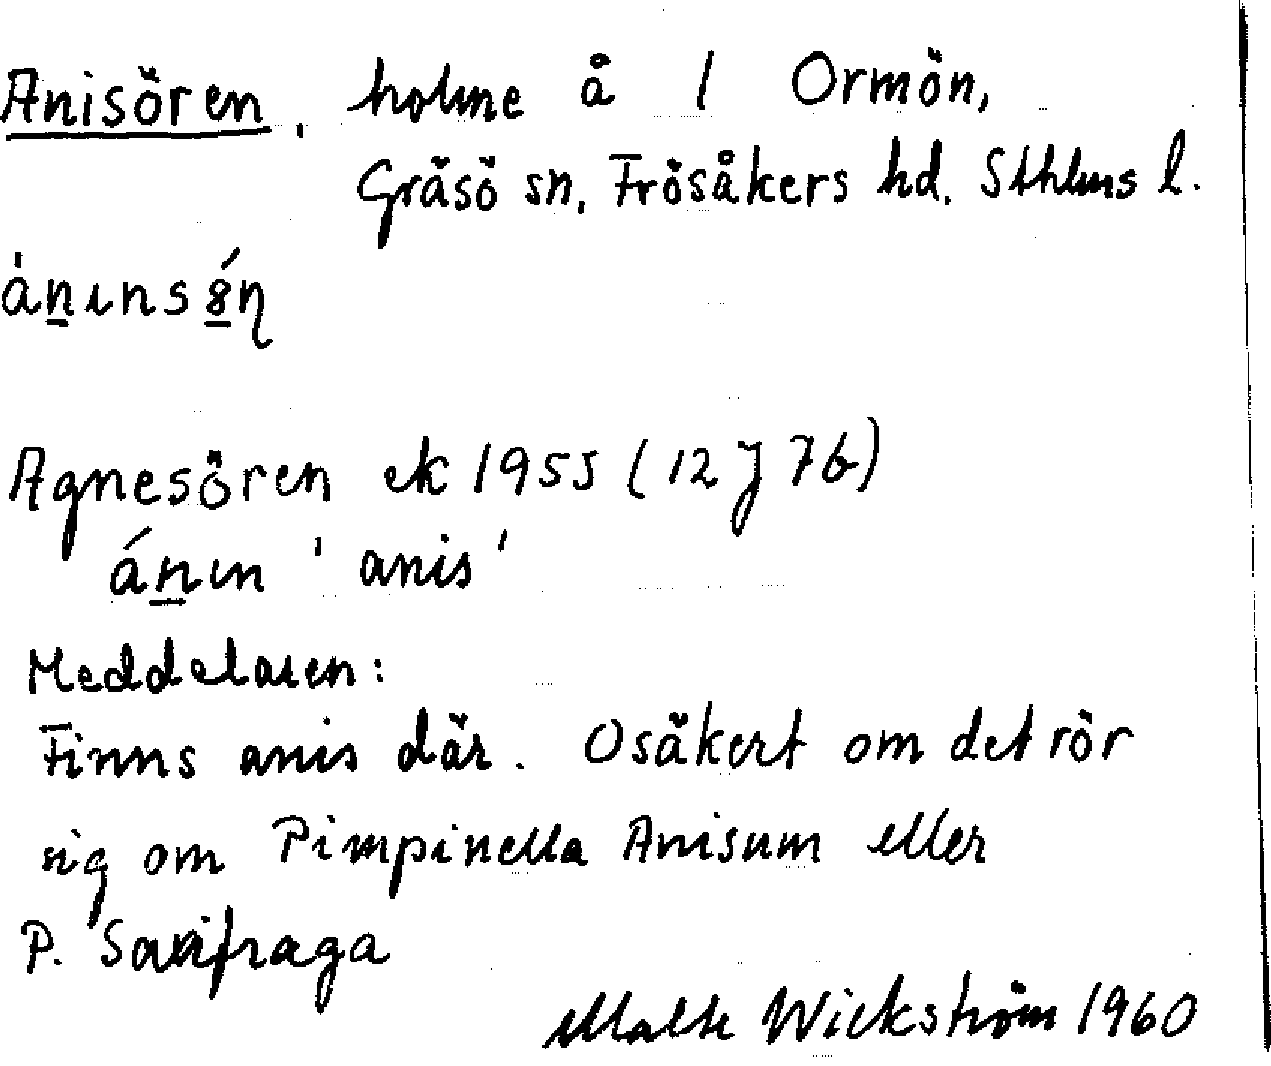 Anisören, holme å / Ormön,
Gräsö sn, Frösåkers hd. Sthlms l.
ánınsǿn
Agnesören ek 1955 (12 J 7b)
ánın 'anis'
Meddelaren:
Finns anis där. Osäkert om det rör
sig om Pimpinella Anisum eller
P. Saxifraga
Malte Wickström 1960